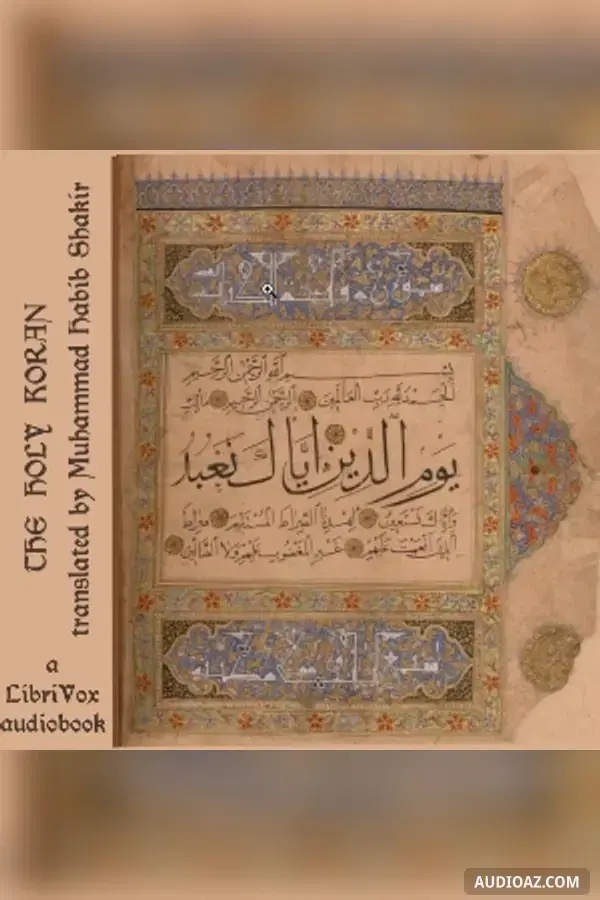 THE HOLY KORAN
translated by Muhammad Habib Shakir
a
LibriVox
audiobook
بسم الله الرحمن الرحيم
الحمد لله رب العالمين الرحمن الرحيم مالك
يوم الدين اياك نعبد
واياك نستعين اهدنا الصراط المستقيم صراط
الذين انعمت عليهم غير المغضوب عليهم ولا الضالين
AUDIOAZ.COM